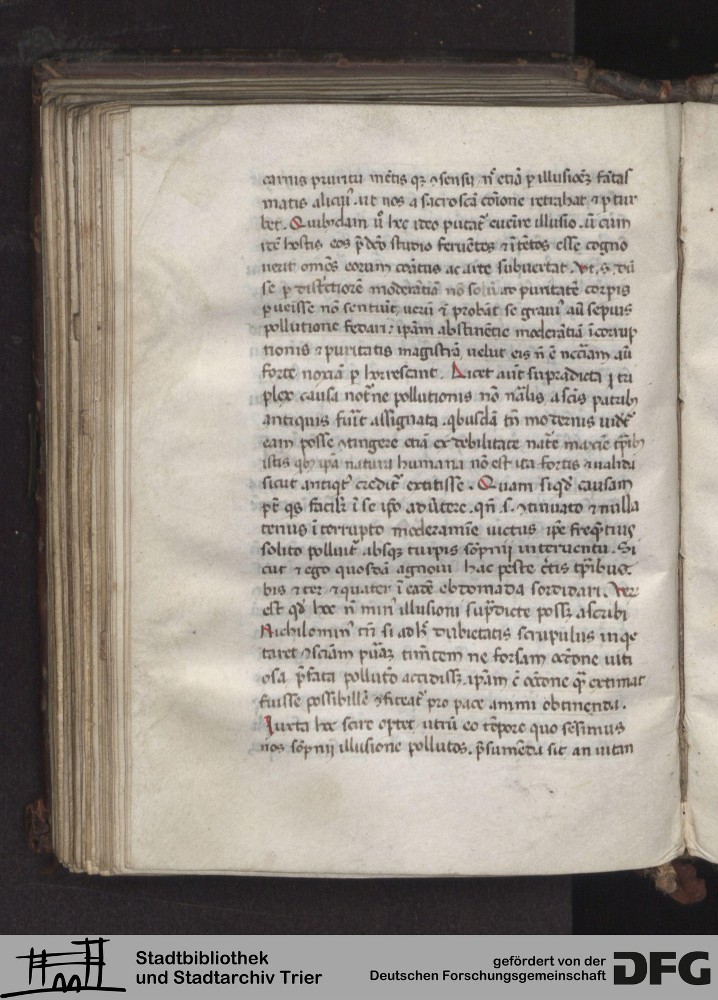 carnis pruritu mētis qꝫ ꝯsensu nō etiā ꝑ illusiōēꝫ fātas
matis alicuiꝰ. ut nos a sacroscā cōione retrahat ⁊ ꝑtur
bet. Quibꝰdam ꝟo hec ideo putat᷑ euēire illusio. ut cum
hostis eos studio feruētes ⁊ ītētos esse cogno
uerit om̄es eorum cōatus ac arte subuertat. Vt .s. dū
se ꝑ moderatiōis nō solū puritatē corpis
ꝑueisse nō sentiūt, uerū ⁊ probāt se graui aū sepius
pollutione fedari: ipām abstinētie moderātiā icorrup
tionis ⁊ puritatis magistrā, uelut eis n̄ ē aū
forte noxiā ꝑ horrescant. Licet aūt supradicta tri
plex causa noct᷑ne pollutionis nō nālis a scīs patribꝫ
antiquis fuīt assignata. qbusdā tn̄ modernis uidet᷑
eam posse ꝯtingere etiā ex debilitate nat᷑e maxīe tp̄ibꝫ
istis qbꝫ ipā natura humana nō est ita fortis ⁊ ualida
sicut antiqtꝰ credit᷑ extitisse. Quam siqdē causam
pt̄ qs facilit᷑ ī se ipō aduertere. qn̄ .s. ⁊ nulla
tenus īterrupto moderamīe uictus ip̄e freqūtius
solito polluit᷑ absqꝫ turpis sōpnii interuentu. Si
cut ⁊ ego quosdā agnoui hac peste cētis tp̄ibus
bis ⁊ ter ⁊ quater ī eadē ebdomada sordidari. Ver
est qd hec n̄ minꝰ illusioni supᵃdicte possꝫ ascribi
Nichilominꝰ tn̄ si adhꝰ dubietatis scrupulus inqe
taret ꝯsciām timētem ne forsam occōne uiti
osa p̄fata pollutō accidissꝫ. ipām ē occōne extimat
fuisse possibille ꝯficeat᷑ pro pace animi obtinenda.
Iuxta hec scire oꝑtet utrū eo tēpore quo sēsimus
nos sōpnii illusione pollutos. p̄sumēda sit an uitan
Stadtbibliothek
und Stadtarchiv Trier
gefördert von der
Deutschen Forschungsgemeinschaft
DFG